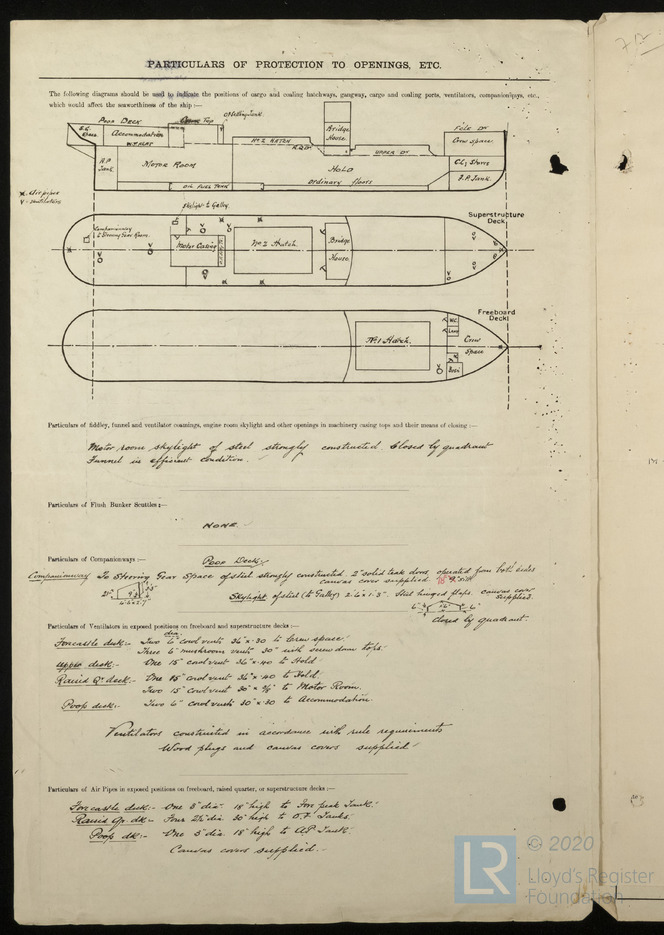 PARTICULARS OF PROTECTION TO OPENINGS, ETC.
The following diagrams should be used to indicate the positions of cargo and coaling hatchways, gangway, cargo and coaling ports, ventilators, companionways, etc.,
which would affect the seaworthiness of the ship :—
POOP DECK
Accommodation
W.T. FLAT
A.P. Tank
MOTOR ROOM
No 2 HATCH
R.Q.Dk
Bridge House
UPPER Dk
HOLD
ordinary floors
OIL FUEL TANK
FOLE Dk
Crew space
Chn Stores
F.P. Tank
x Air pipes
V - Ventilators
Skylight to Galley
Companionway
to Steering Gear Room
Motor Casing
No 2 Hatch
Bridge
House
Superstructure
Deck
Freeboard
Deck
No 1 Hatch
W.C.
Crew
Space
Particulars of fiddley, funnel and ventilator coamings, engine room skylight and other openings in machinery casing tops and their means of closing :—
Motor room skylight of steel strongly constructed. Closed by quadrant
Funnel in efficient condition.
Particulars of Flush Bunker Scuttles :—
NONE
Particulars of Companionways :—
Poop Deck
Companionway To Steering Gear Space of steel strongly constructed. 2" solid teak doors, operated from both sides
canvas cover supplied. 18" sill
Skylight of steel (to Galley) 2'6 x 1'3". Steel hinged flaps. canvas cover
supplied.
closed by quadrant.
Particulars of Ventilators in exposed positions on freeboard and superstructure decks :—
Forecastle deck:- Two 6" dia. cowl vents 36" x .30 to Crew space.
Three 6" mushroom vents 30" with screw down tops.
Upper deck:- One 15" cowl vent 36" x .40 to Hold.
Raised Qr. deck:- One 15" cowl vent 36" x .40 to Hold.
Two 15" cowl vent 30" x to Motor Room.
Poop deck:- Two 6" cowl vents 30" x 30 to Accommodation.
Ventilators constructed in accordance with rule requirements
Wood plugs and canvas covers supplied
Particulars of Air Pipes in exposed positions on freeboard, raised quarter, or superstructure decks :—
Forecastle deck:- One 3" dia. 18" high to Fore peak Tank.
Raised Qr. dk:- Four 2½" dia. 30" high to O.F. Tanks.
Poop dk:- One 3" dia. 18" high to A.P. Tank.
Canvas covers supplied.-
© 2020
LR
Lloyd's Register
Foundation